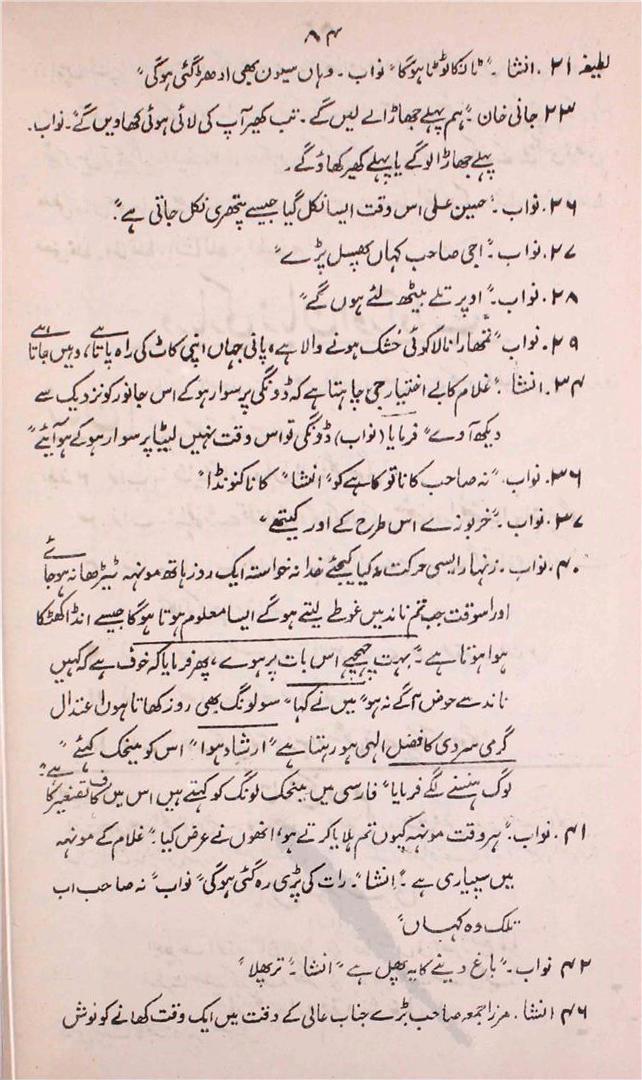 ۸۴
لطیفہ ۲۱. انشا ۔ "ٹانکا ٹوٹا ہوگا" نواب ۔ وہاں سیون بھی ادھڑ گئی ہوگی"
۲۳ جانی خان ۔ "ہم پہلے جھاڑا لے لیں گے ۔ تب کھیر آپ کی لائی ہوئی کھاویں گے"۔ نواب ۔
پہلے جھاڑا لوگے یا پہلے کھیر کھاؤگے ۔
۲۶. نواب ۔ "حسین علی اس وقت ایسا نکل گیا جیسے پتھری نکل جاتی ہے"۔
۲۷. نواب ۔ "اجی صاحب کہاں پھسل پڑے"
۲۸. نواب ۔ "اوپر تلے بیٹھ لئے ہوں گے"
۲۹. نواب "تمھارا نالا کوئی خشک ہونے والا ہے، پانی جہاں اپنی کاٹ کی راہ پاتا ہے، وہیں جاتا ہے
۳۴. انشا ۔ "غلام کا بے اختیار جی چاہتا ہے کہ ڈونگی پر سوار ہو کے اس جانور کو نزدیک سے
دیکھ آوے" فرمایا (نواب) ڈونگی تو اس وقت نہیں لیٹا پر سوار ہو کے ہو آیئے"
۳۶. نواب ۔ "نہ صاحب کانا تو کا ہے کو" انشا" کانا کنونڈا"
۳۷. نواب ۔ "خربوزے اس طرح کے اور کیتھے"
۴۰. نواب ۔ زنہار ایسی حرکت نہ کیا کیجئے خدا نہ خواستہ ایک روز ہاتھ مونہہ ٹیڑھا نہ ہو جائے
اور اسوقت جب تم ناند میں غوطے لیتے ہوگے ایسا معلوم ہوتا ہوگا جیسے انڈا کھٹکا
ہوا ہوتا ہے"۔ بہت چہچہے اس بات پر ہوے، پھر فرمایا کہ خوف ہے کہ کہیں
ناند سے حوض آگے نہ ہو" میں نے کہا" سو لونگ بھی روز کھاتا ہوں اعتدال
گرمی سردی کا فضل الٰہی ہو رہتا ہے" ارشاد ہوا" اس کو میخک کہئے"
لوگ ہنسنے لگے فرمایا" فارسی میں میخک لونگ کو کہتے ہیں اس میں کاف تصغیر کا ہے"۔
۴۱. نواب ۔ "ہر وقت مونہہ کیوں تم ہلایا کرتے ہو" انھوں نے عرض کیا ۔ "غلام کے مونہہ
میں سپیاری ہے ۔" انشا ۔ "رات کی پڑی رہ گئی ہوگی" نواب" نہ صاحب اب
تلک وہ کہاں"
۴۲ نواب ۔ "باغ دینے کا یہ پھل ہے" انشا ۔ "ترپھلا"
۴۶ انشا ۔ مرزا جمعہ صاحب بڑے جناب عالی کے وقت میں ایک وقت کھانے کو نوش